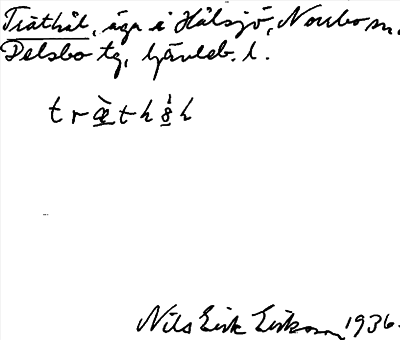 Träthål, äga i Hålsjö, Norrbo sn.
Delsbo tg, Gävleb. l.
t r æ̀ t h 8̩ h
Nils Erik Eriksson 1936.